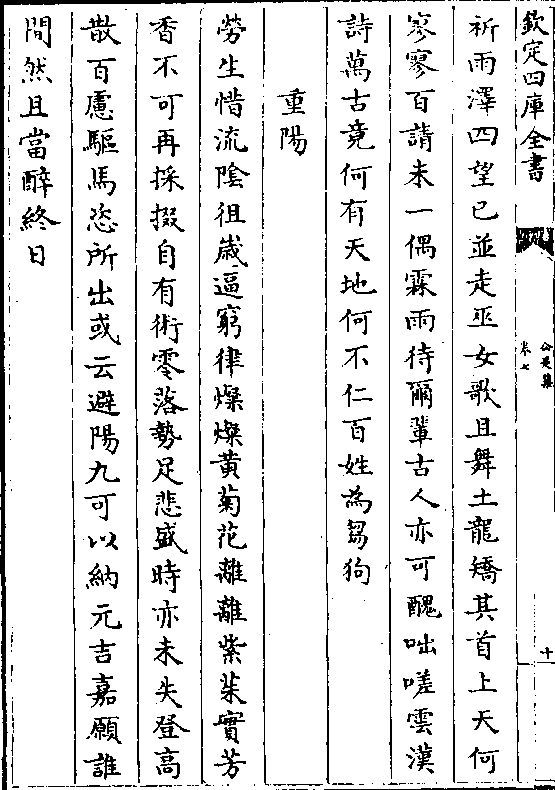 欽定四庫全書
公是集
卷七
十
祈雨澤四望已並走巫女歌且舞土龍矯其首上天何
寥寥百請未一偶霖雨待爾輩古人亦可醜咄嗟雲漢
詩萬古竟何有天地何不仁百姓為芻狗
重陽
勞生惜流陰徂歲逼窮律燦燦黃菊花離離紫茱實芳
香不可再採掇自有術零落勢足悲盛時亦未失登高
散百慮驅馬恣所出或云避陽九可以納元吉嘉願誰
間然且當醉終日